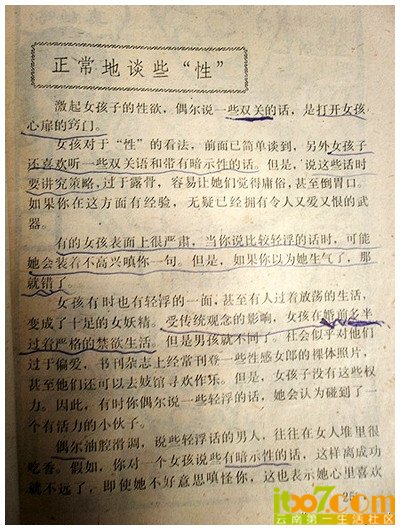 正常地谈些“性”
激起女孩子的性欲，偶尔说一些双关的话，是打开女孩
心扉的窍门。
女孩对于“性”的看法，前面已简单谈到，另外女孩子
还喜欢听一些双关语和带有暗示性的话。但是，说这些话时
要讲究策略，过于露骨，容易让她们觉得庸俗，甚至倒胃口。
如果你在这方面有经验，无疑已经拥有令人又爱又恨的武
器。
有的女孩表面上很严肃，当你说比较轻浮的话时，可能
她会装着不高兴嗔你一句。但是，如果你以为她生气了，那
就错了。
女孩有时也有轻浮的一面，甚至有人过着放荡的生活，
变成了十足的女妖精。受传统观念的影响，女孩在婚前多半
过着严格的禁欲生活。但是男孩就不同了。社会似乎对他们
过于偏爱，书刊杂志上经常刊登一些性感女郎的裸体照片，
甚至他们还可以去妓馆寻欢作乐。但是，女孩子没有这些权
力。因此，有时你偶尔说一些轻浮的话，她会认为碰到了一
个有活力的小伙子。
偶尔油腔滑调，说些轻浮话的男人，往往在女人堆里很
吃香。假如，你对一个女孩说些有暗示性的话，这样离成功
就不远了，即使她不好意思嗔怪你，这也表示她心里喜欢
itb07.com
云南第一生活社区